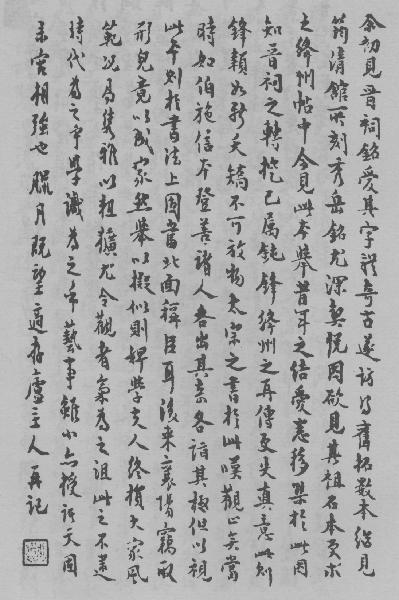 余初見晉祠銘愛其字體奇古遂訪得舊拓數本繼見
筠清館所刻秀岳銘尤深契悅因欲見其祖石本更求
之絳州帖中今見此本舉昔年之結愛悉移集於此因
知晉祠之轉從已屬鈍鋒絳州之再傳更失真意此則
鋒穎如新夭矯不可放物太宗之書於此嘆觀止矣當
時如伯施信本登善諸人各出其奇各詣其極但以視
此本則於書法上固當北面稱臣耳後來襄陽竊取
形皃竟以成家然舉以擬似則婢學夫人終損大家風
範況局隻雅以粗獷尤令觀者氣為之沮此之不逮
時代為之乎學識為之乎藝事雖小亦授諸天固
未害相強也臘月既望適存廬主人再記